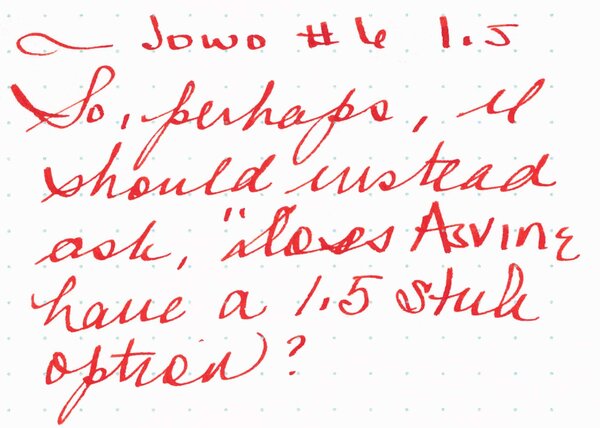 Jowo #6 1.5
So, perhaps, I
should instead
ask, "Does Asvine
have a 1.5 stub
option?